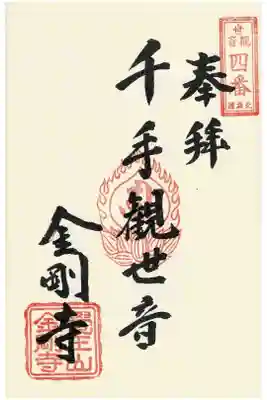 奉拝
四番
千手観世音
金剛寺
金剛寺